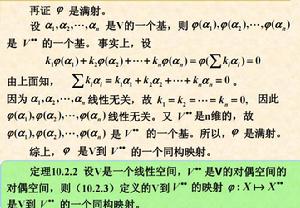 再证 φ 是满射。
设 α₁,α₂,⋯,αₙ 是V的一个基，则 φ(α₁),φ(α₂),⋯,φ(αₙ)
是 V** 的一个基。事实上，设
k₁φ(α₁)+k₂φ(α₂)+⋯+kₙφ(αₙ)=φ(∑kᵢαᵢ)=0
由上面知， ∑kᵢαᵢ=k₁α₁+k₂α₂+⋯+kₙαₙ=0 。
因为 α₁,α₂,⋯,αₙ 线性无关，故 k₁=k₂=⋯=kₙ=0, 因此
φ(α₁),φ(α₂),⋯,φ(αₙ) 线性无关。又 V** 是n维的，故
φ(α₁),φ(α₂),⋯,φ(αₙ) 是 V** 的一个基。所以，φ 是满射。
综上，φ 是V到 V** 的一个同构映射。
定理10.2.2 设V是一个线性空间，V** 是V的对偶空间的
对偶空间，则（10.2.3）定义的V到 V** 的映射 φ:X↦X**
是V到 V** 的一个同构映射。